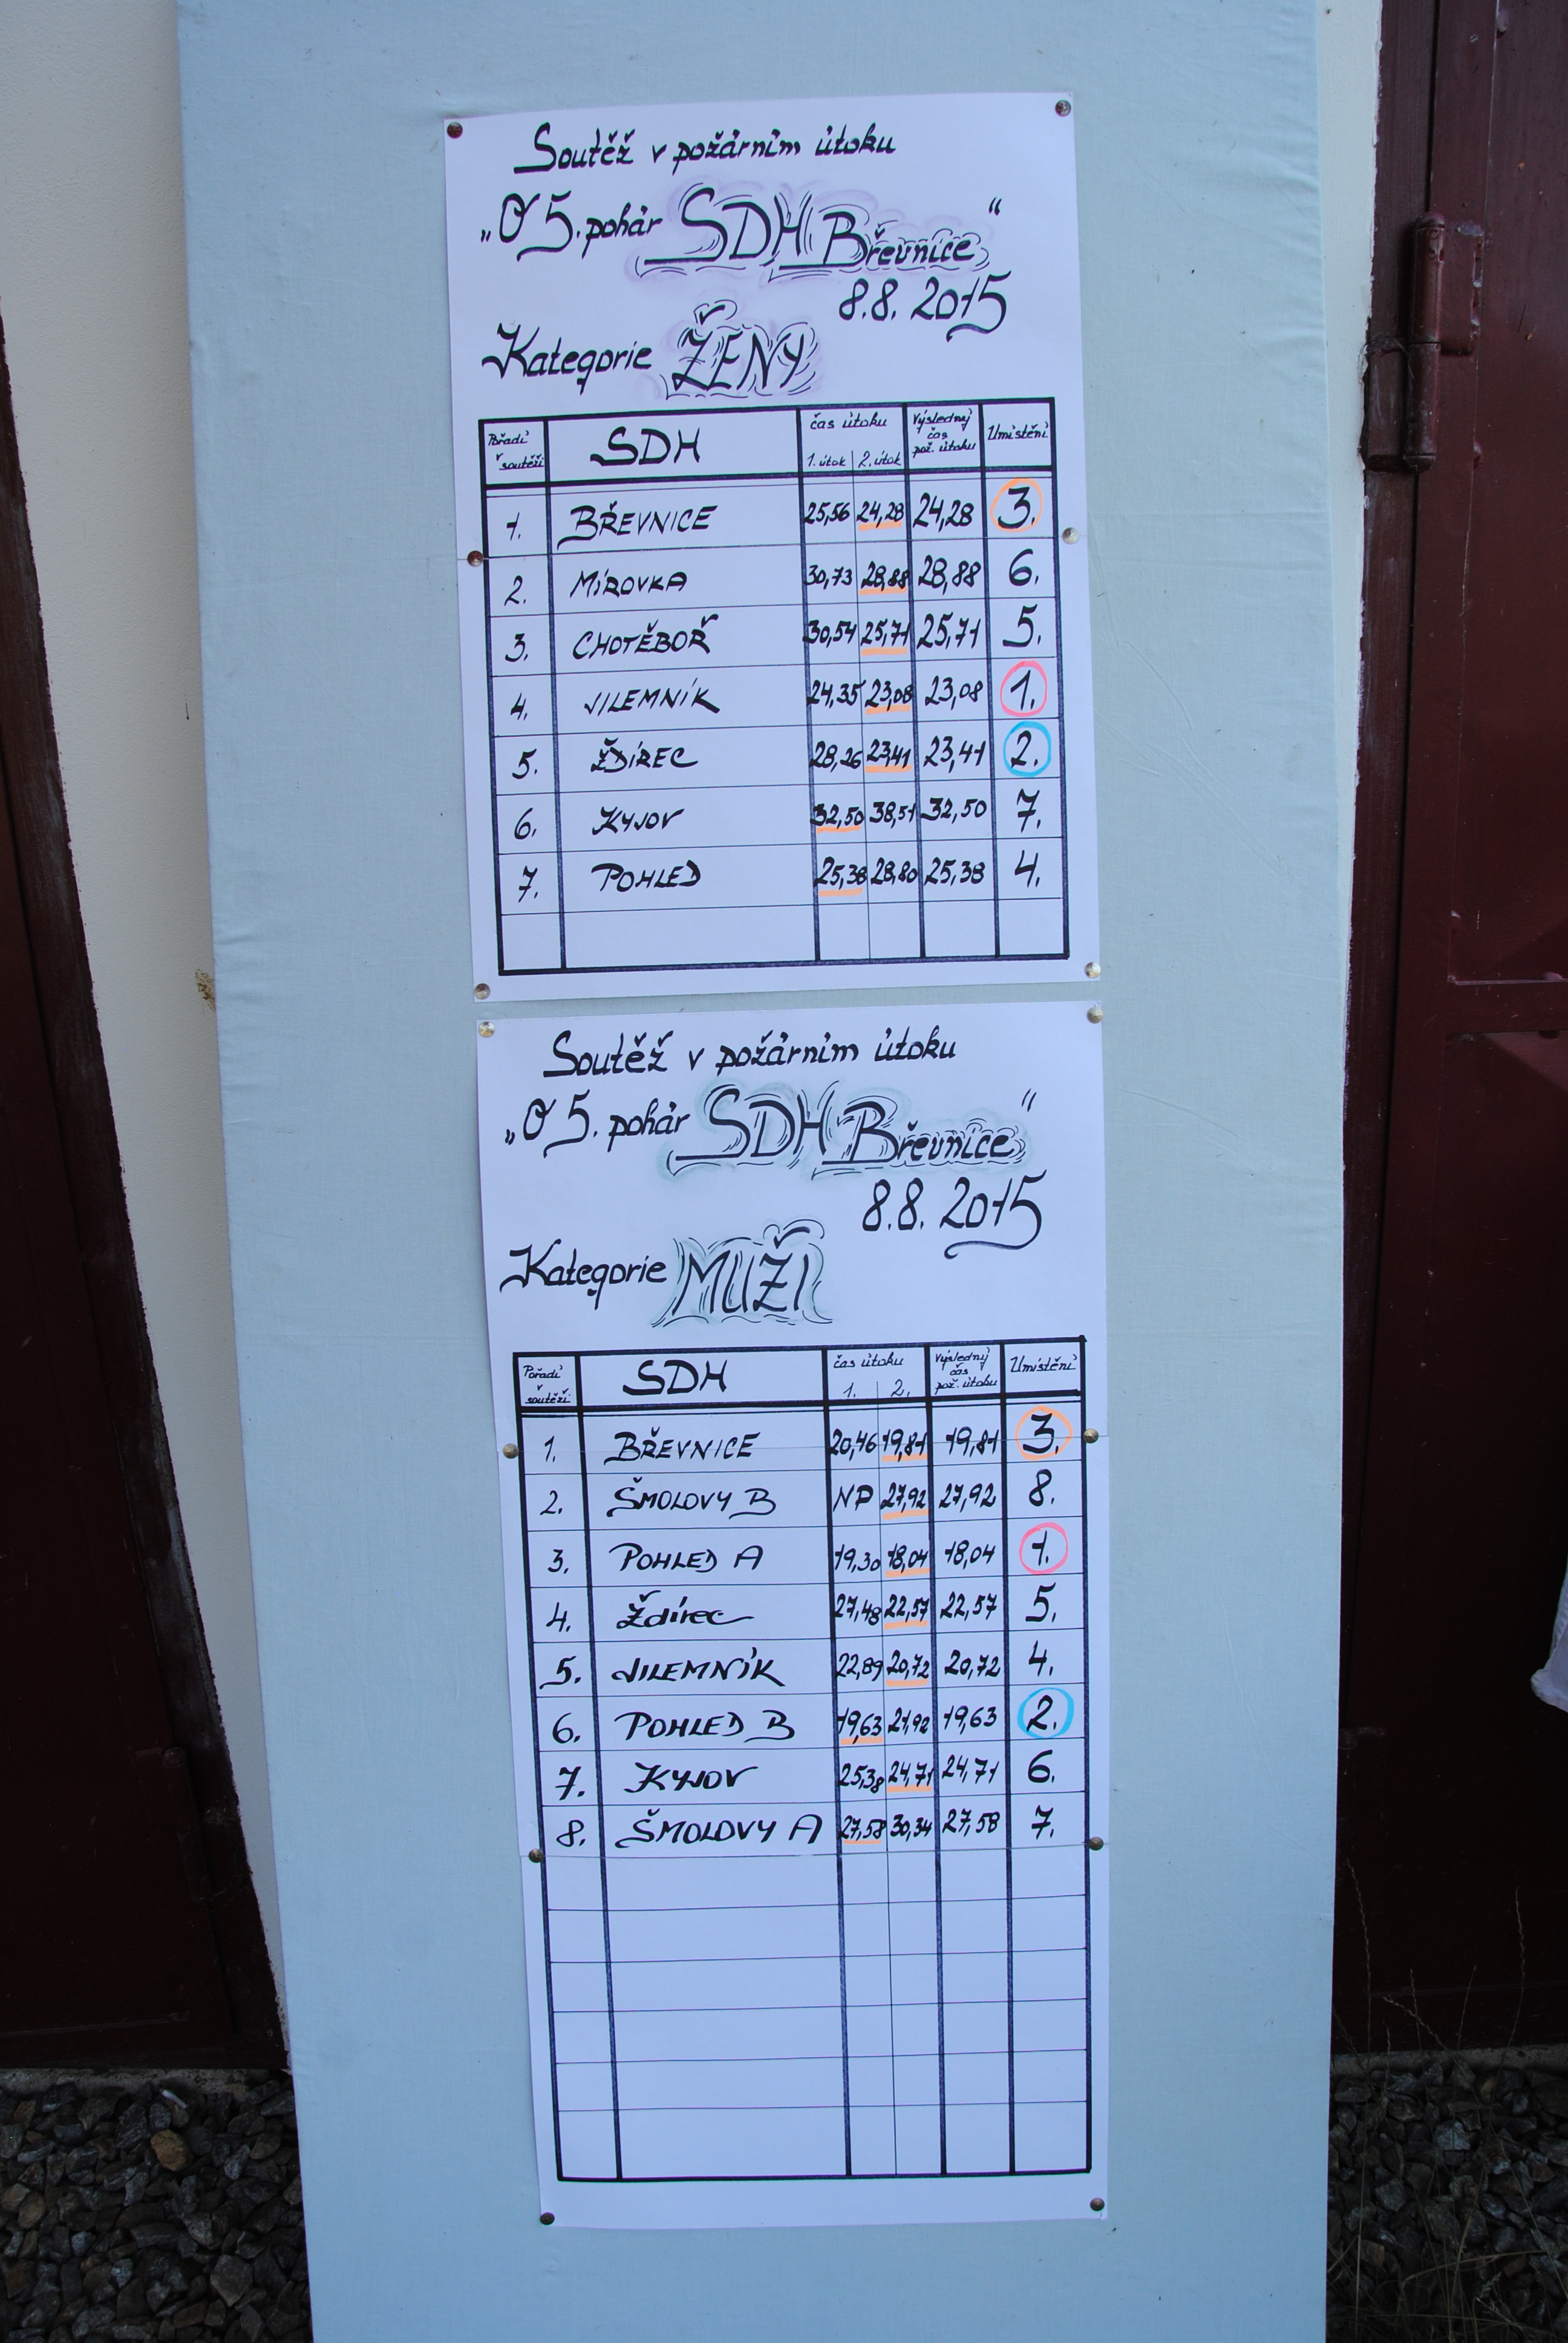 Soutěž v požárním útoku
„O 5. pohár SDH Břevnice“
8.8. 2015
Kategorie ŽENY
Pořadí v soutěži SDH čas útoku 1. útok 2. útok Výsledný čas pož. útoku Umístění
1. BŘEVNICE 25,56 24,28 24,28 3.
2. MÍROVKA 30,73 28,88 28,88 6.
3. CHOTĚBOŘ 30,54 25,71 25,71 5.
4. JILEMNÍK 24,35 23,08 23,08 1.
5. ŽDÍREC 28,26 23,41 23,41 2.
6. KYJOV 32,50 38,51 32,50 7.
7. POHLED 25,38 28,80 25,38 4.
Soutěž v požárním útoku
„O 5. pohár SDH Břevnice“
8.8. 2015
Kategorie MUŽI
Pořadí v soutěži SDH čas útoku 1. 2. Výsledný čas pož. útoku Umístění
1. BŘEVNICE 20,46 19,81 19,81 3.
2. ŠMOLOVY B NP 27,92 27,92 8.
3. POHLED A 19,30 18,04 18,04 1.
4. Ždírec 27,48 22,57 22,57 5.
5. JILEMNÍK 22,89 20,72 20,72 4.
6. POHLED B 19,63 21,92 19,63 2.
7. KYJOV 25,38 24,71 24,71 6.
8. ŠMOLOVY A 27,58 30,34 27,58 7.